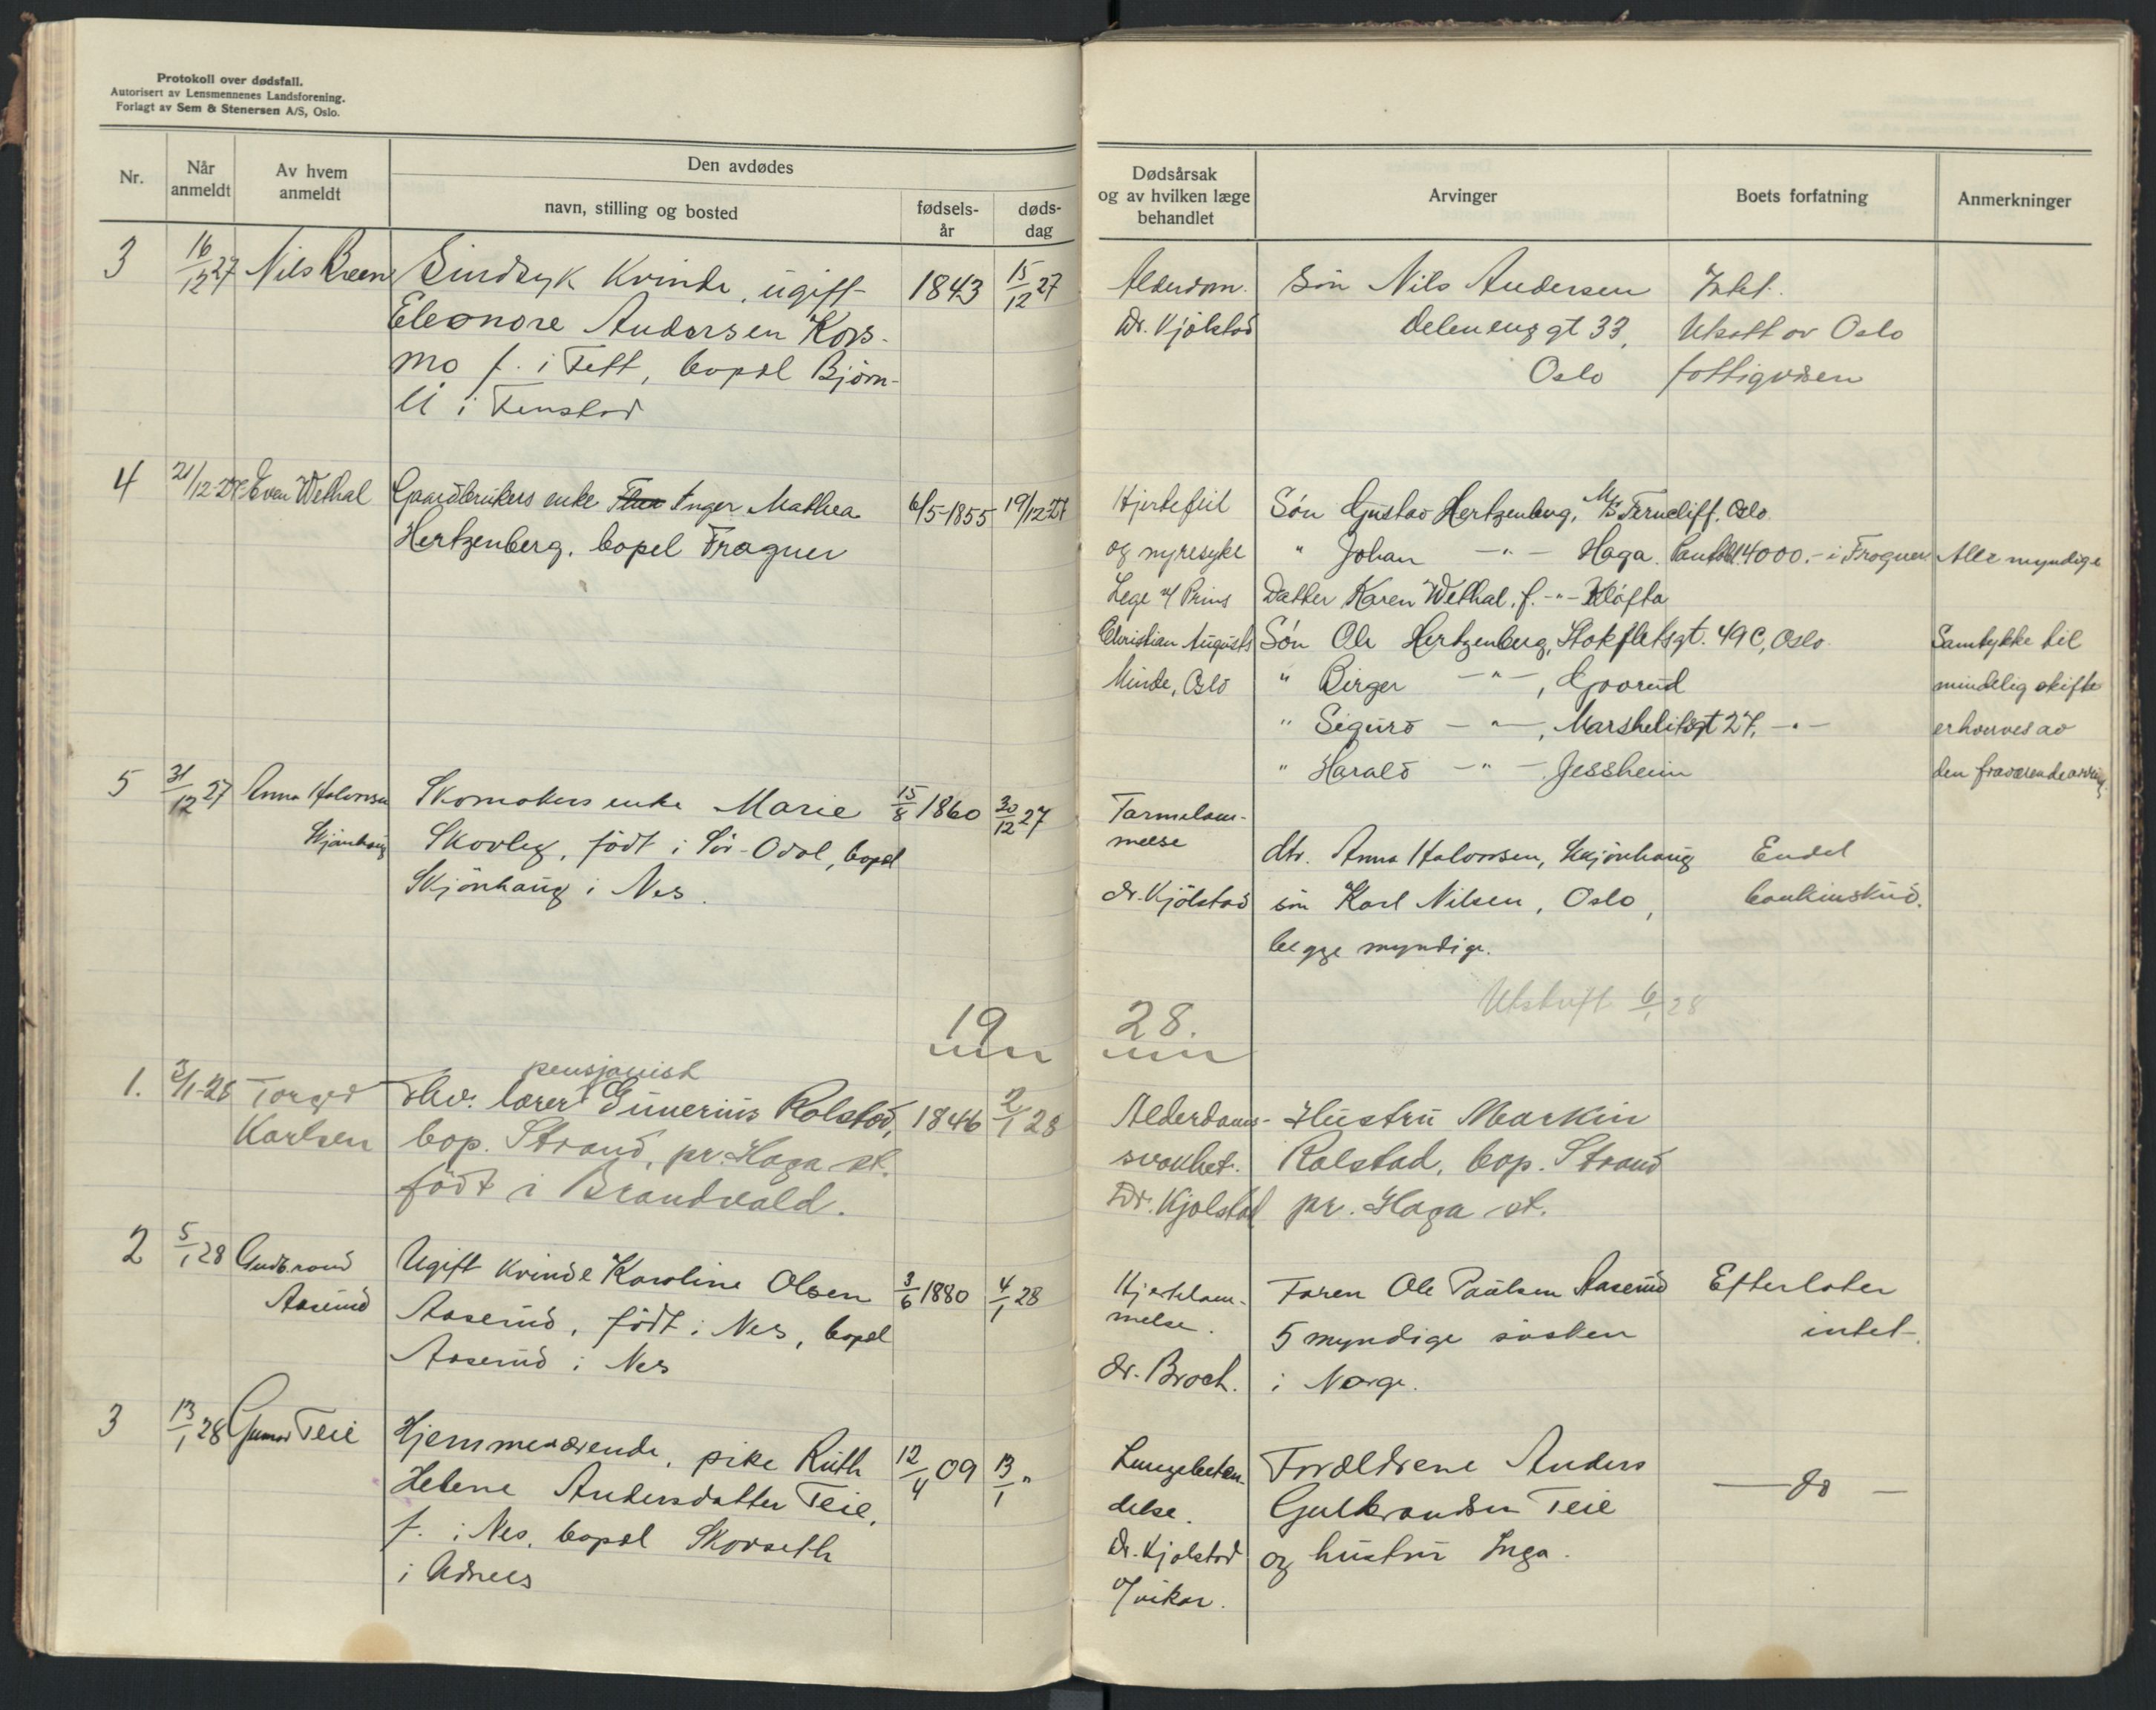 Protokoll over dødsfall.
Autorisert av Lensmennenes Landsforening.
Forlagt av Sem & Stenersen A/S, Oslo.
Nr.
Når anmeldt
Av hvem anmeldt
Den avdødes
navn, stilling og bosted
fødsels-år
døds-dag
Dødsårsak og av hvilken læge behandlet
Arvinger
Boets forfatning
Anmerkninger
3 16/12 27 Nils Sindsyk Kvinde, ugift 1843 15/12 27
Eleonore Andersen Kors-
mo f. i Fett, bopel Bjørn-
li i Fenstad
Alderdom. Søn Nils Andersen Intet.
Dr. Kjølstad Delenenggt 33, Utsatt av Oslo
Oslo fattigvesen
4 21/12-27 Even Wethal Gaardbrukers enke Inger Mathea 6/5-1855 19/12 27
Hertzenberg, bopel Frogner
Hjertefeil Søn Gustav Hertzenberg, M/S Ferncliff, Oslo
og nyresyke " Johan -"- Haga. 14000.- i Frogner. Alle myndige
Lege v/ Prins Datter Karen Wethal, f. -"- Kløfta
Christian Augusts Søn Ole Hertzenberg, Stokfletsgt. 49C, Oslo. Samtykke til
Minde, Oslo " Birger -"-, Gaarud mindelig skifte
" Sigurd -"-, gt 27, -"- erhverves av
" Harald -"- Jessheim den fraværende arving.
5 31/12 27 Anna Halvorsen Skomakers enke Marie 15/8 1860 30/12 27
Skjønhaug Skovly, født i Sør-Odal, bopel
Skjønhaug i Nes.
Tarmslam-
melse dtr. Anna Halvorsen, Skjønhaug Endel
dr. Kjølstad søn Karl Nilsen, Oslo, bankinskud.
begge myndige.
Utskrift 6/1 28
19 28.
pensjonist
1. 3/1-28 Torger fhv. lærer Gunerius Rolstad, 1846 2/1 28
Karlsen bop. Strand, pr. Haga st.
født i Brandvald.
Alderdoms- Hustru Markin
svakhet. Rolstad, bop. Strand
Dr. Kjølstad pr. Haga st.
2 5/1 28 Gudbrand Ugift kvinde Karoline Olsen 3/6 1880 4/1 28
Aaserud Aaserud, født i Nes, bopel
Aaserud i Nes
Hjertelam- Faren Ole Paulsen Aaserud Efterlater
melse. 5 myndige søsken intet.
dr. Broch. i Norge.
3 13/1 28 Gunnar Teie Hjemmeværende, pike Ruth 12/4 09 13/1 "
Helene Andersdatter Teie,
f. i Nes, bopel Skovseth
i Udnes
Lungebeten- Forældrene Anders
delse. Gulbrandsen Teie — do —
Dr. Kjølstad og hustru Inga.
v/ vikar.